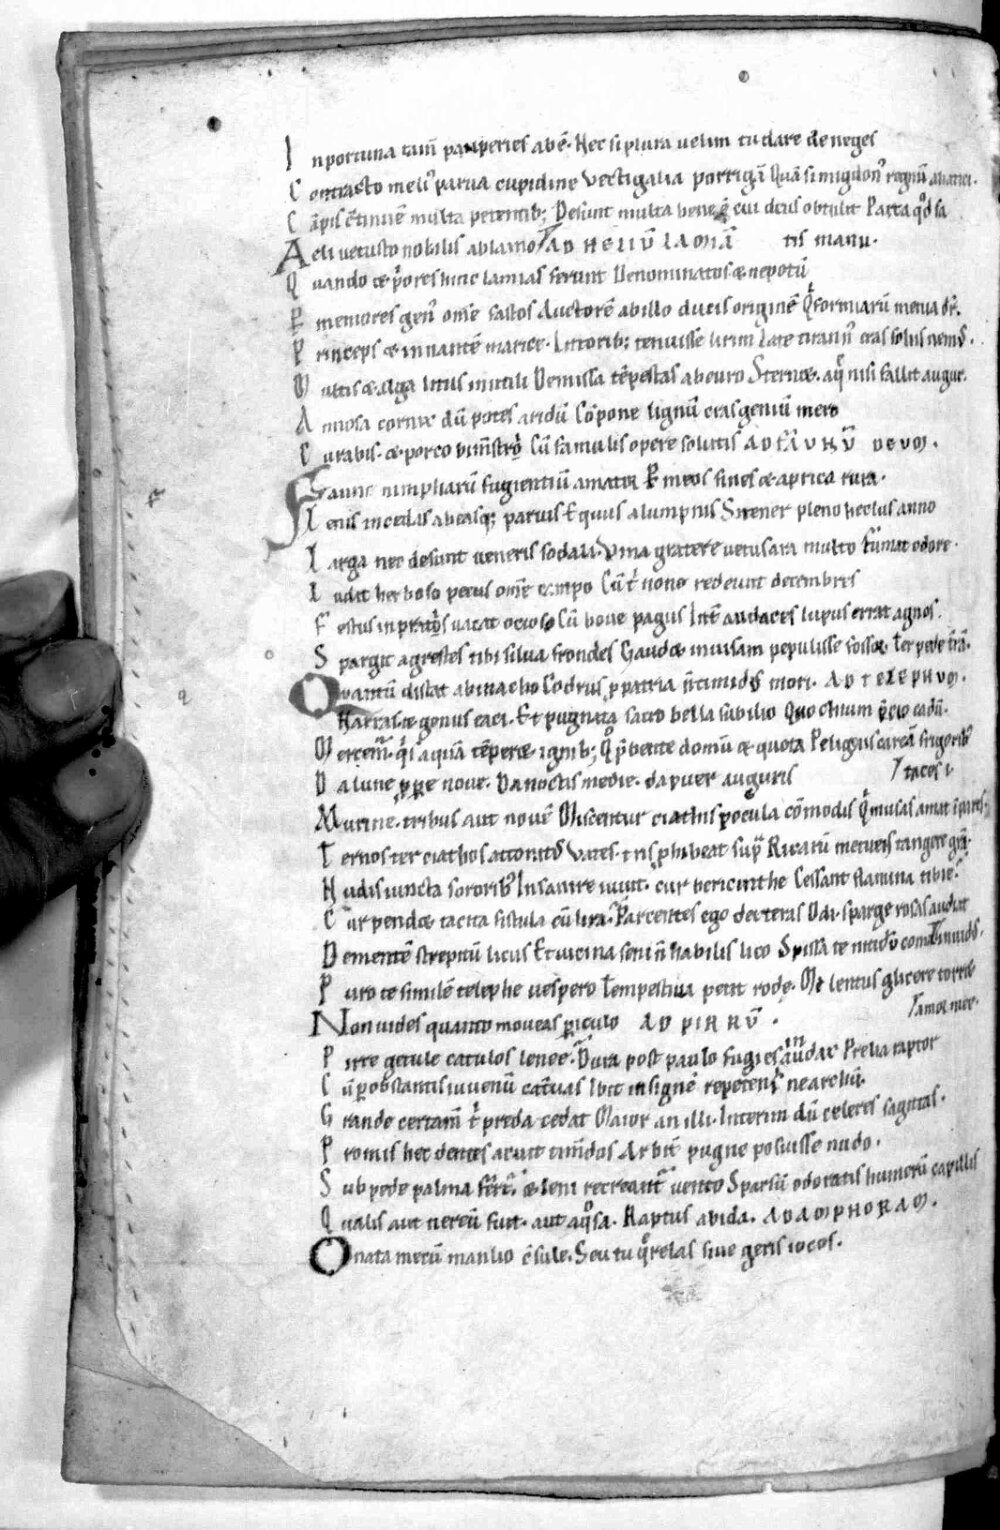 Inportuna tam̄ pauperies abē. Nec si plura uelim tu dare deneges
Contracto meli᾽ parua cupidine Vectigalia porrigā Quā si migdon᾽ regnū aliatei.
Cāpis c̄tinuem multa petentib; Desunt multa bene ē cui deus obtulit Parca qd̊ sa
Aeli uetusto nobilis ablamo AD HELIŪ LAMIĀ tis manu.
Quando & p̄ores hinc lamias ferunt Denominatos & nepotū
P memores gen᾽ om̄e fastos Auctorē abillo ducis originē Q̇ formiarū menia dr̄.
Princeps & innantē marice. Littorib; tenuisse lirim Late tirann᾽ cras folus nem᾽.
Multis & alga litus inutili Demissa tēpestas abeuro Sternæ. aq̊ nisi fallit augur.
Annosa cornix dū potes aridū Cōpone lignū cras genium mero
Curabis. & porco bimēstrı̇ Cū famulis opere solutis AD FAVNŪ DEVM.
Faune nimpharū fugientiū amator P meos fines & aprica rura.
Lenis incedas abeasq; paruis Equus alumpnis Si tener pleno heclus anno
Larga nec desunt ueneris sodali. Vina gratere uetus ara multo fumat odore.
Ludit herboso pecus om̄e campo Cū t᾽ none redeunt decembres
Festus in pratis uacat ocioso Cū boue pagus Int᾽ audaces lupus errat agnos.
Spargit agrestes tibi silua frondes Gaud& inuisam pepulisse fossor. Ter pede t̄rā.
Quantū distat abinacho Codrus p patria n̄ timid᾽ mori. AD TELEPHVM.
Narras. & genus eaci. Et pugnata sacro bella sub ilio Quo chium p̄cio cadū.
Mercem᾽. q̇s aquā tēper&. ignib; Q̊ p̄bente domū & quota Peligniscareā frigorib᾽
Da lune pp̄e noue. Da noctis medie. da puer auguris taces i
Murine. tribus aut nouē Miscentur ciathis pocula cōmodis Q̇ musas amat īpares;
Ternos ter ciathos attonit᾽ Vates. tris phibeat sup̄ Rixarū metuens tangere grā.
Nudis iuncta sororib᾽ Insanire iuuit. cur bericinthe Cessant flamina tibie.
Cur pend& tacita fistula cū lira. Parcentes ego dexteras Odi. sparge rosas audiat
Dementē strepitū licus Et uicina seni n̄ habilis lico Spissa te nitidū coma inuid᾽.
Puro te similē telephe uespero Tempestiua petit rode. Me lentus glicere torr&
Non uides quanto moueas periculo AD PIRRŪ. amor mee.
Pirre getule catulos lenee. Dura post paulo fugies audax Prelia raptor
Cū p obstantis iuuenū cateruas Ibit insignē repetens nearchū.
Grande certam̄ t᾽ preda cedat Maior an illi. Interim dū celeres sagittas.
Promis hec dentes acuit timēdos Arbit᾽ pugne posuisse nudo.
Sub pede palma fert᾽. & leni recreant᾽ uento Sparsū odoratis humerū capillis
Qualis aut nereū fuit. aut aq̊sa. Raptus abida. AD AMPHORAM.
O nata mecū manlio c̄sule. Seu tu q̊relas siue geris iocos.